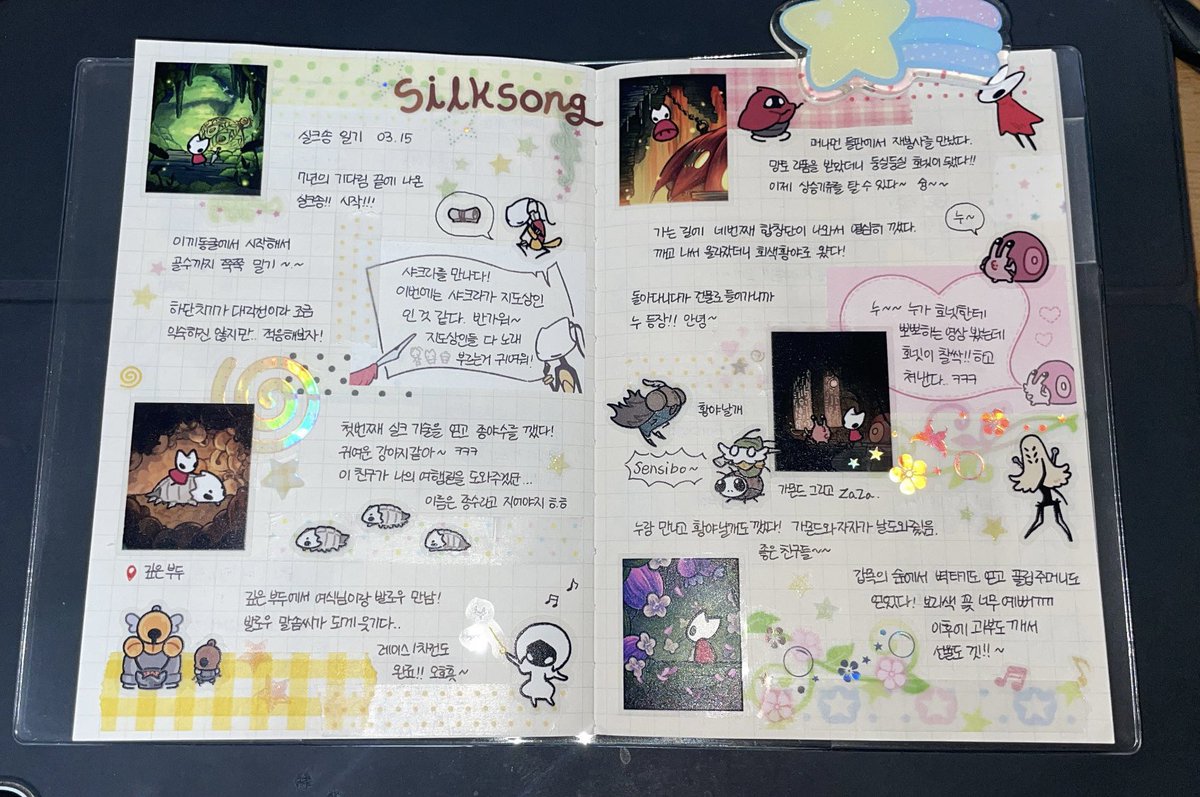 Silksong
실크송 일기 03.15
7년의 기다림 끝에 나온
실크송!! 시작!!!
이끼동굴에서 시작해서
골수까지 쭉쭉 밀기~~
하단치기가 대각선이라 조금
익숙하진 않지만.. 적응해보자!
샤크라를 만나다!
이번에는 샤크라가 지도상인
인 것 같다. 반가워~
지도상인들 다 노래
부르는거 귀여워!
첫번째 실크 기술을 얻고 종야수를 깼다!
귀여운 강아지같아~ ㅋㅋ
이 친구가 나의 여행길을 도와주겠군...
이름은 종수라고 지어야지 ㅎㅎ
깊은 부두
깊은 부두에서 여식님이랑 발로우 만남!
발로우 말씀씨가 되게 웃기다..
레이스 1차전도
완료!! 오호홋~
머나먼 들판에서 재봉사를 만났다.
망토 리폼을 받았더니 둥실둥실 호넷이 됐다!!
이제 상승기류를 탈 수 있다~ 슝~~
가는 길에 네번째 합창단이 나와서 열심히 깼다.
깨고 나서 올라갔더니 회색황야로 왔다!
누~
돌아다니다가 건물로 들어가니까
누 등장!! 안녕~
누~~ 누가 호넷한테
뽀뽀하는 영상 봤는데
호넷이 찰싹!!하고
쳐낸다.. ㅋㅋㅋ
황야날개
Sensibo~
가몬드 그리고 ZaZa.
누랑 만나고 황야날개도 깼다! 가몬드와 자자가 날 도와줬음.
좋은 친구들~~
갑목의 숲에서 벽타기도 얻고 꿀럽주머니도
얻었다! 보라색 꽃 너무 예뻐끼끼
이후에 과부도 깨서
선별도 겟!!~